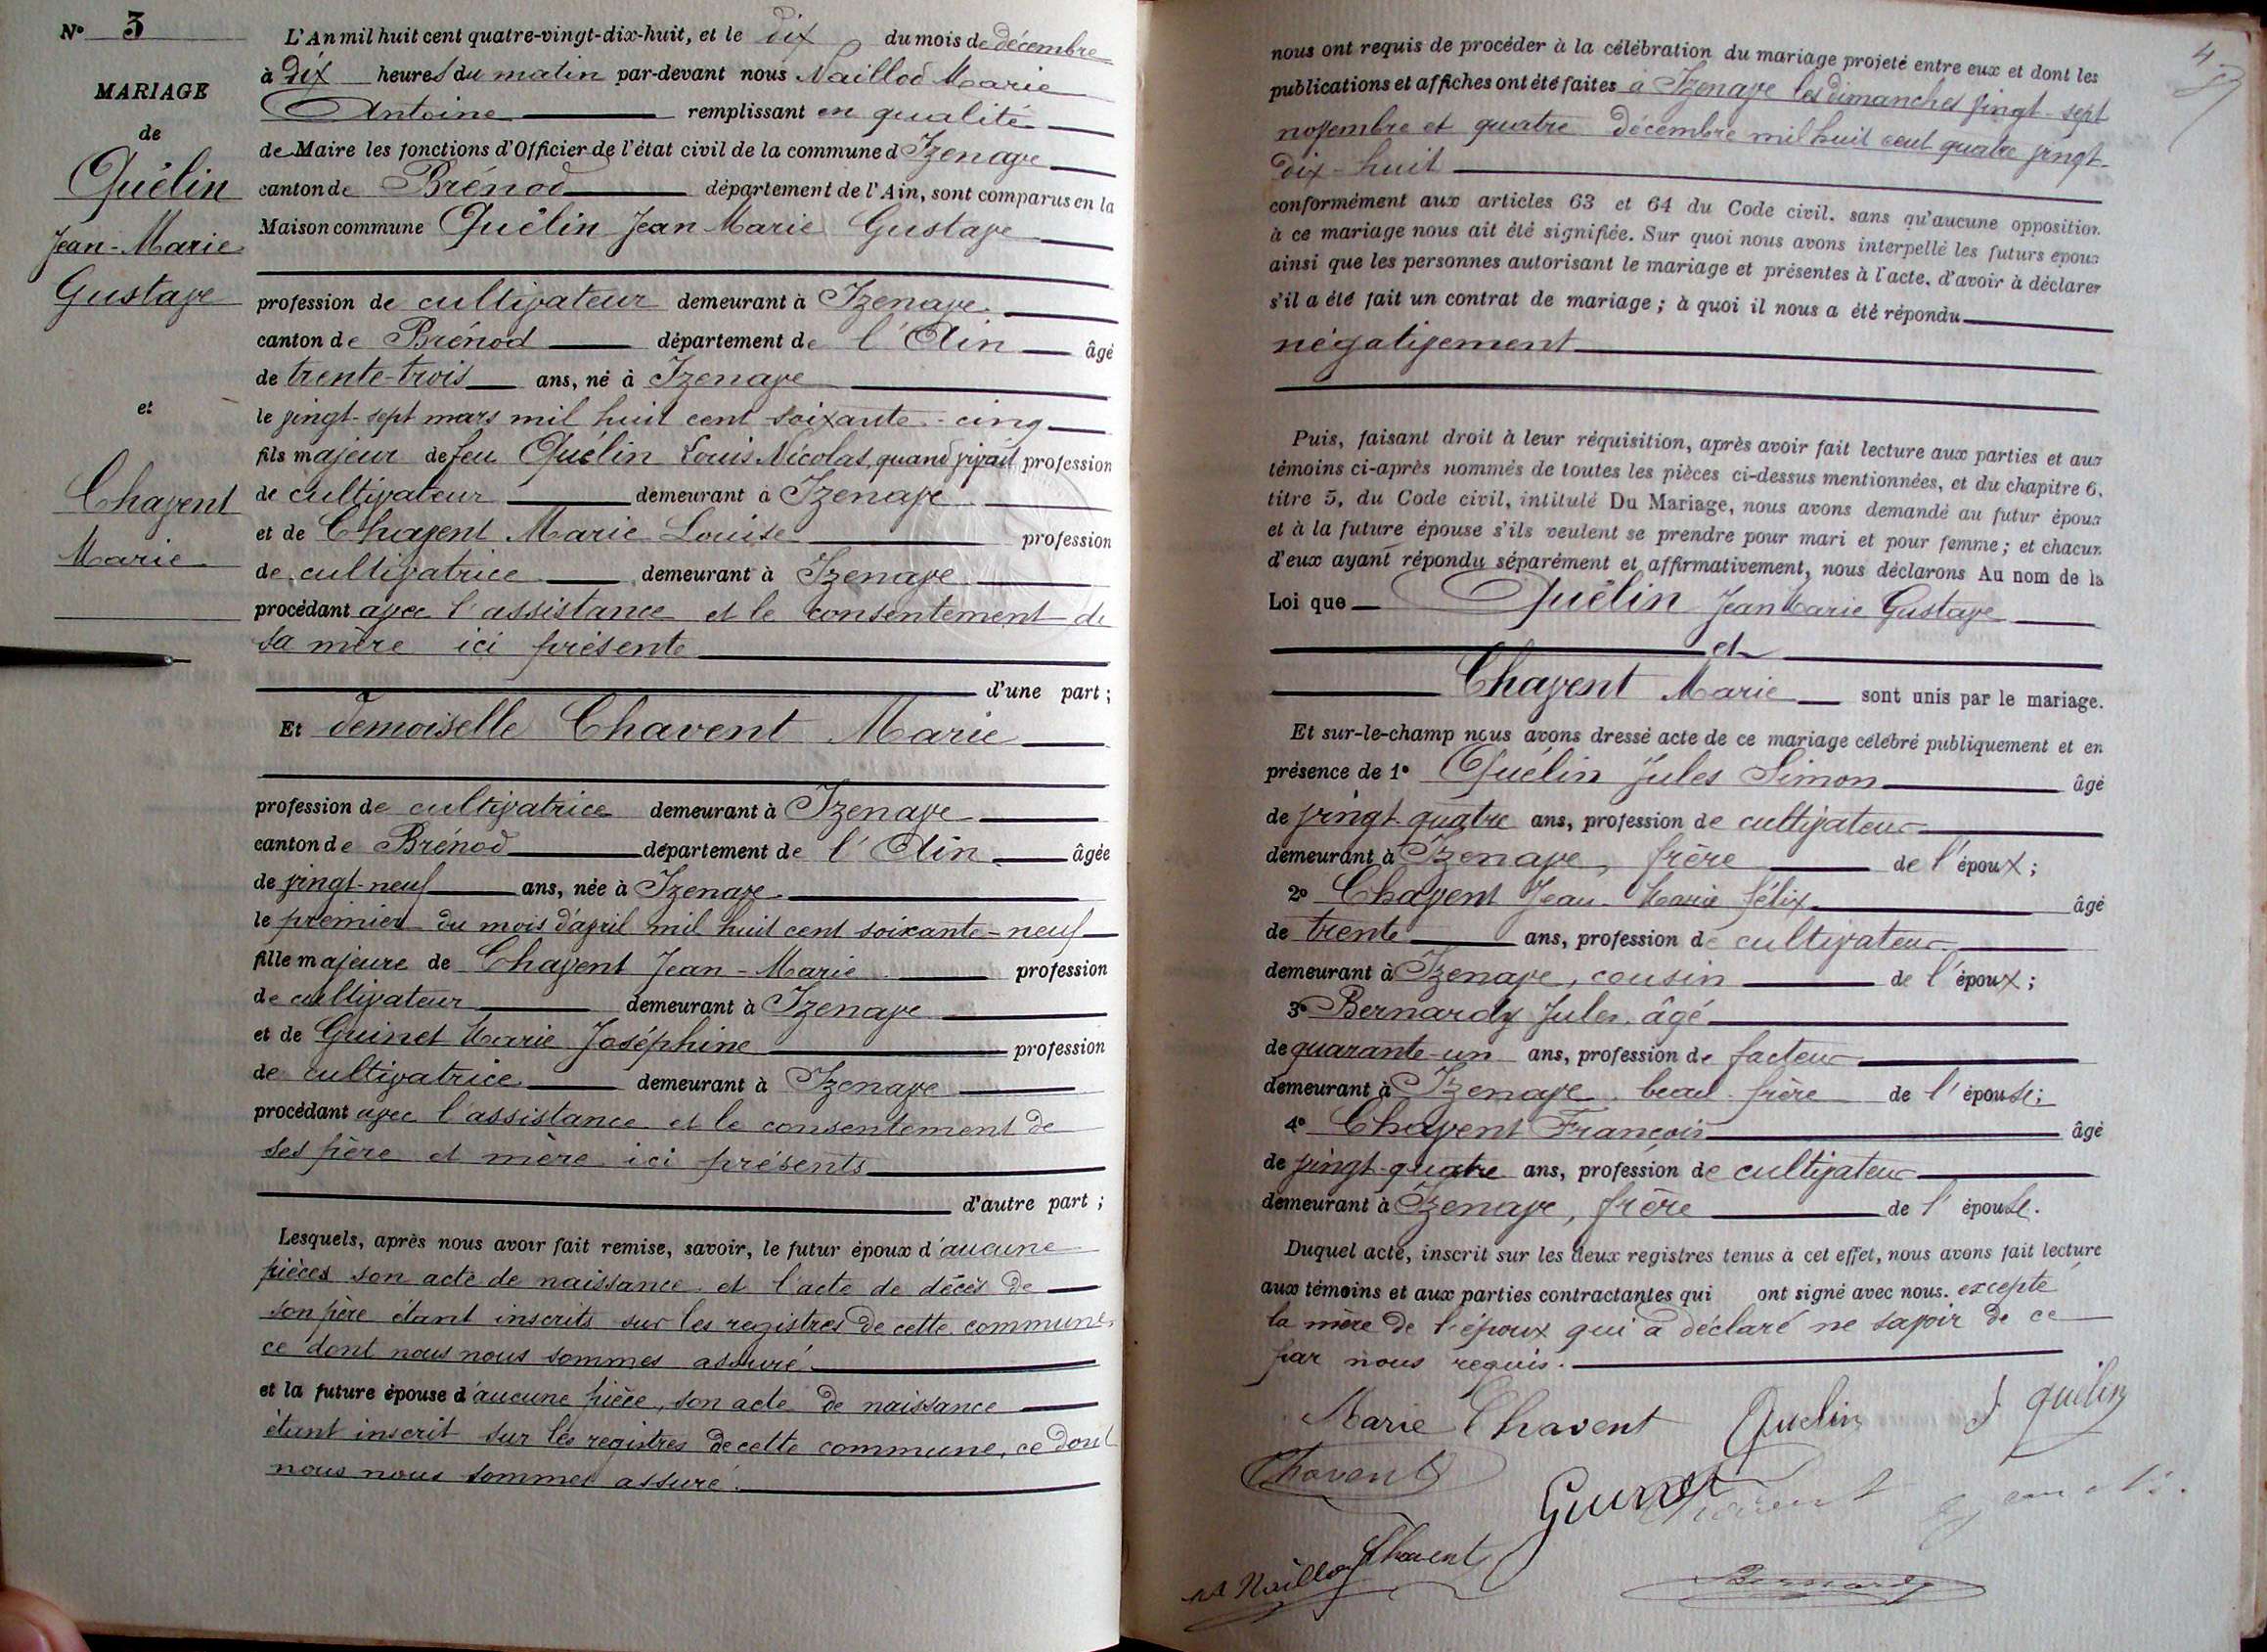 N° 3
MARIAGE
de
Quélin
Jean-Marie
Gustave
et
Chavent
Marie
L'An mil huit cent quatre-vingt-dix-huit, et le dix du mois de décembre
à dix heures du matin par-devant nous Naillod Marie
Antoine remplissant en qualité
de Maire les fonctions d'Officier de l'état civil de la commune d Izenave
canton de Brénod département de l'Ain, sont comparus en la
Maison commune Quélin Jean Marie Gustave
profession de cultivateur demeurant à Izenave
canton de Brénod département de l'Ain âgé
de trente-trois ans, né à Izenave
le vingt-sept mars mil huit cent soixante-cinq
fils majeur de feu Quélin Louis Nicolas, quand vivait profession
de cultivateur demeurant à Izenave
et de Chavent Marie Louise profession
de cultivatrice demeurant à Izenave
procédant avec l'assistance et le consentement de
sa mère ici présente
d'une part ;
Et demoiselle Chavent Marie
profession de cultivatrice demeurant à Izenave
canton de Brénod département de l'Ain âgée
de vingt-neuf ans, née à Izenave
le premier du mois d'avril mil huit cent soixante-neuf
fille majeure de Chavent Jean-Marie profession
de cultivateur demeurant à Izenave
et de Guinet Marie Joséphine profession
de cultivatrice demeurant à Izenave
procédant avec l'assistance et le consentement de
ses père et mère ici présents
d'autre part ;
Lesquels, après nous avoir fait remise, savoir, le futur époux d'aucune
pièces son acte de naissance et l'acte de décès de
son père étant inscrits sur les registres de cette commune,
ce dont nous nous sommes assuré.
et la future épouse d'aucune pièce, son acte de naissance
étant inscrit sur les registres de cette commune, ce dont
nous nous sommes assuré.
4
nous ont requis de procéder à la célébration du mariage projeté entre eux et dont les
publications et affiches ont été faites à Izenave les dimanches vingt-sept
novembre et quatre décembre mil huit cent quatre vingt-
dix-huit
conformément aux articles 63 et 64 du Code civil, sans qu'aucune opposition
à ce mariage nous ait été signifiée. Sur quoi nous avons interpellé les futurs époux
ainsi que les personnes autorisant le mariage et présentes à l'acte, d'avoir à déclarer
s'il a été fait un contrat de mariage ; à quoi il nous a été répondu
négativement
Puis, faisant droit à leur réquisition, après avoir fait lecture aux parties et aux
témoins ci-après nommés de toutes les pièces ci-dessus mentionnées, et du chapitre 6,
titre 5, du Code civil, intitulé Du Mariage, nous avons demandé au futur époux
et à la future épouse s'ils veulent se prendre pour mari et pour femme ; et chacun
d'eux ayant répondu séparément et affirmativement, nous déclarons Au nom de la
Loi que Quélin Jean Marie Gustave
et
Chavent Marie sont unis par le mariage.
Et sur-le-champ nous avons dressé acte de ce mariage célébré publiquement et en
présence de 1° Quélin Jules Simon âgé
de vingt-quatre ans, profession de cultivateur
demeurant à Izenave, frère de l'époux ;
2° Chavent Jean Marie Félix âgé
de trente ans, profession de cultivateur
demeurant à Izenave, cousin de l'époux ;
3° Bernardy Jules, âgé
de quarante-un ans, profession de facteur
demeurant à Izenave beau-frère de l'épouse ;
4° Chavent François âgé
de vingt-quatre ans, profession de cultivateur
demeurant à Izenave, frère de l'épouse.
Duquel acte, inscrit sur les deux registres tenus à cet effet, nous avons fait lecture
aux témoins et aux parties contractantes qui ont signé avec nous. excepté
la mère de l'époux qui a déclaré ne savoir de ce
par nous requis.
Marie Chavent Quelin J quelin
Chavent
Guinet Chavent
Chavent
M A Naillod
Bernardy